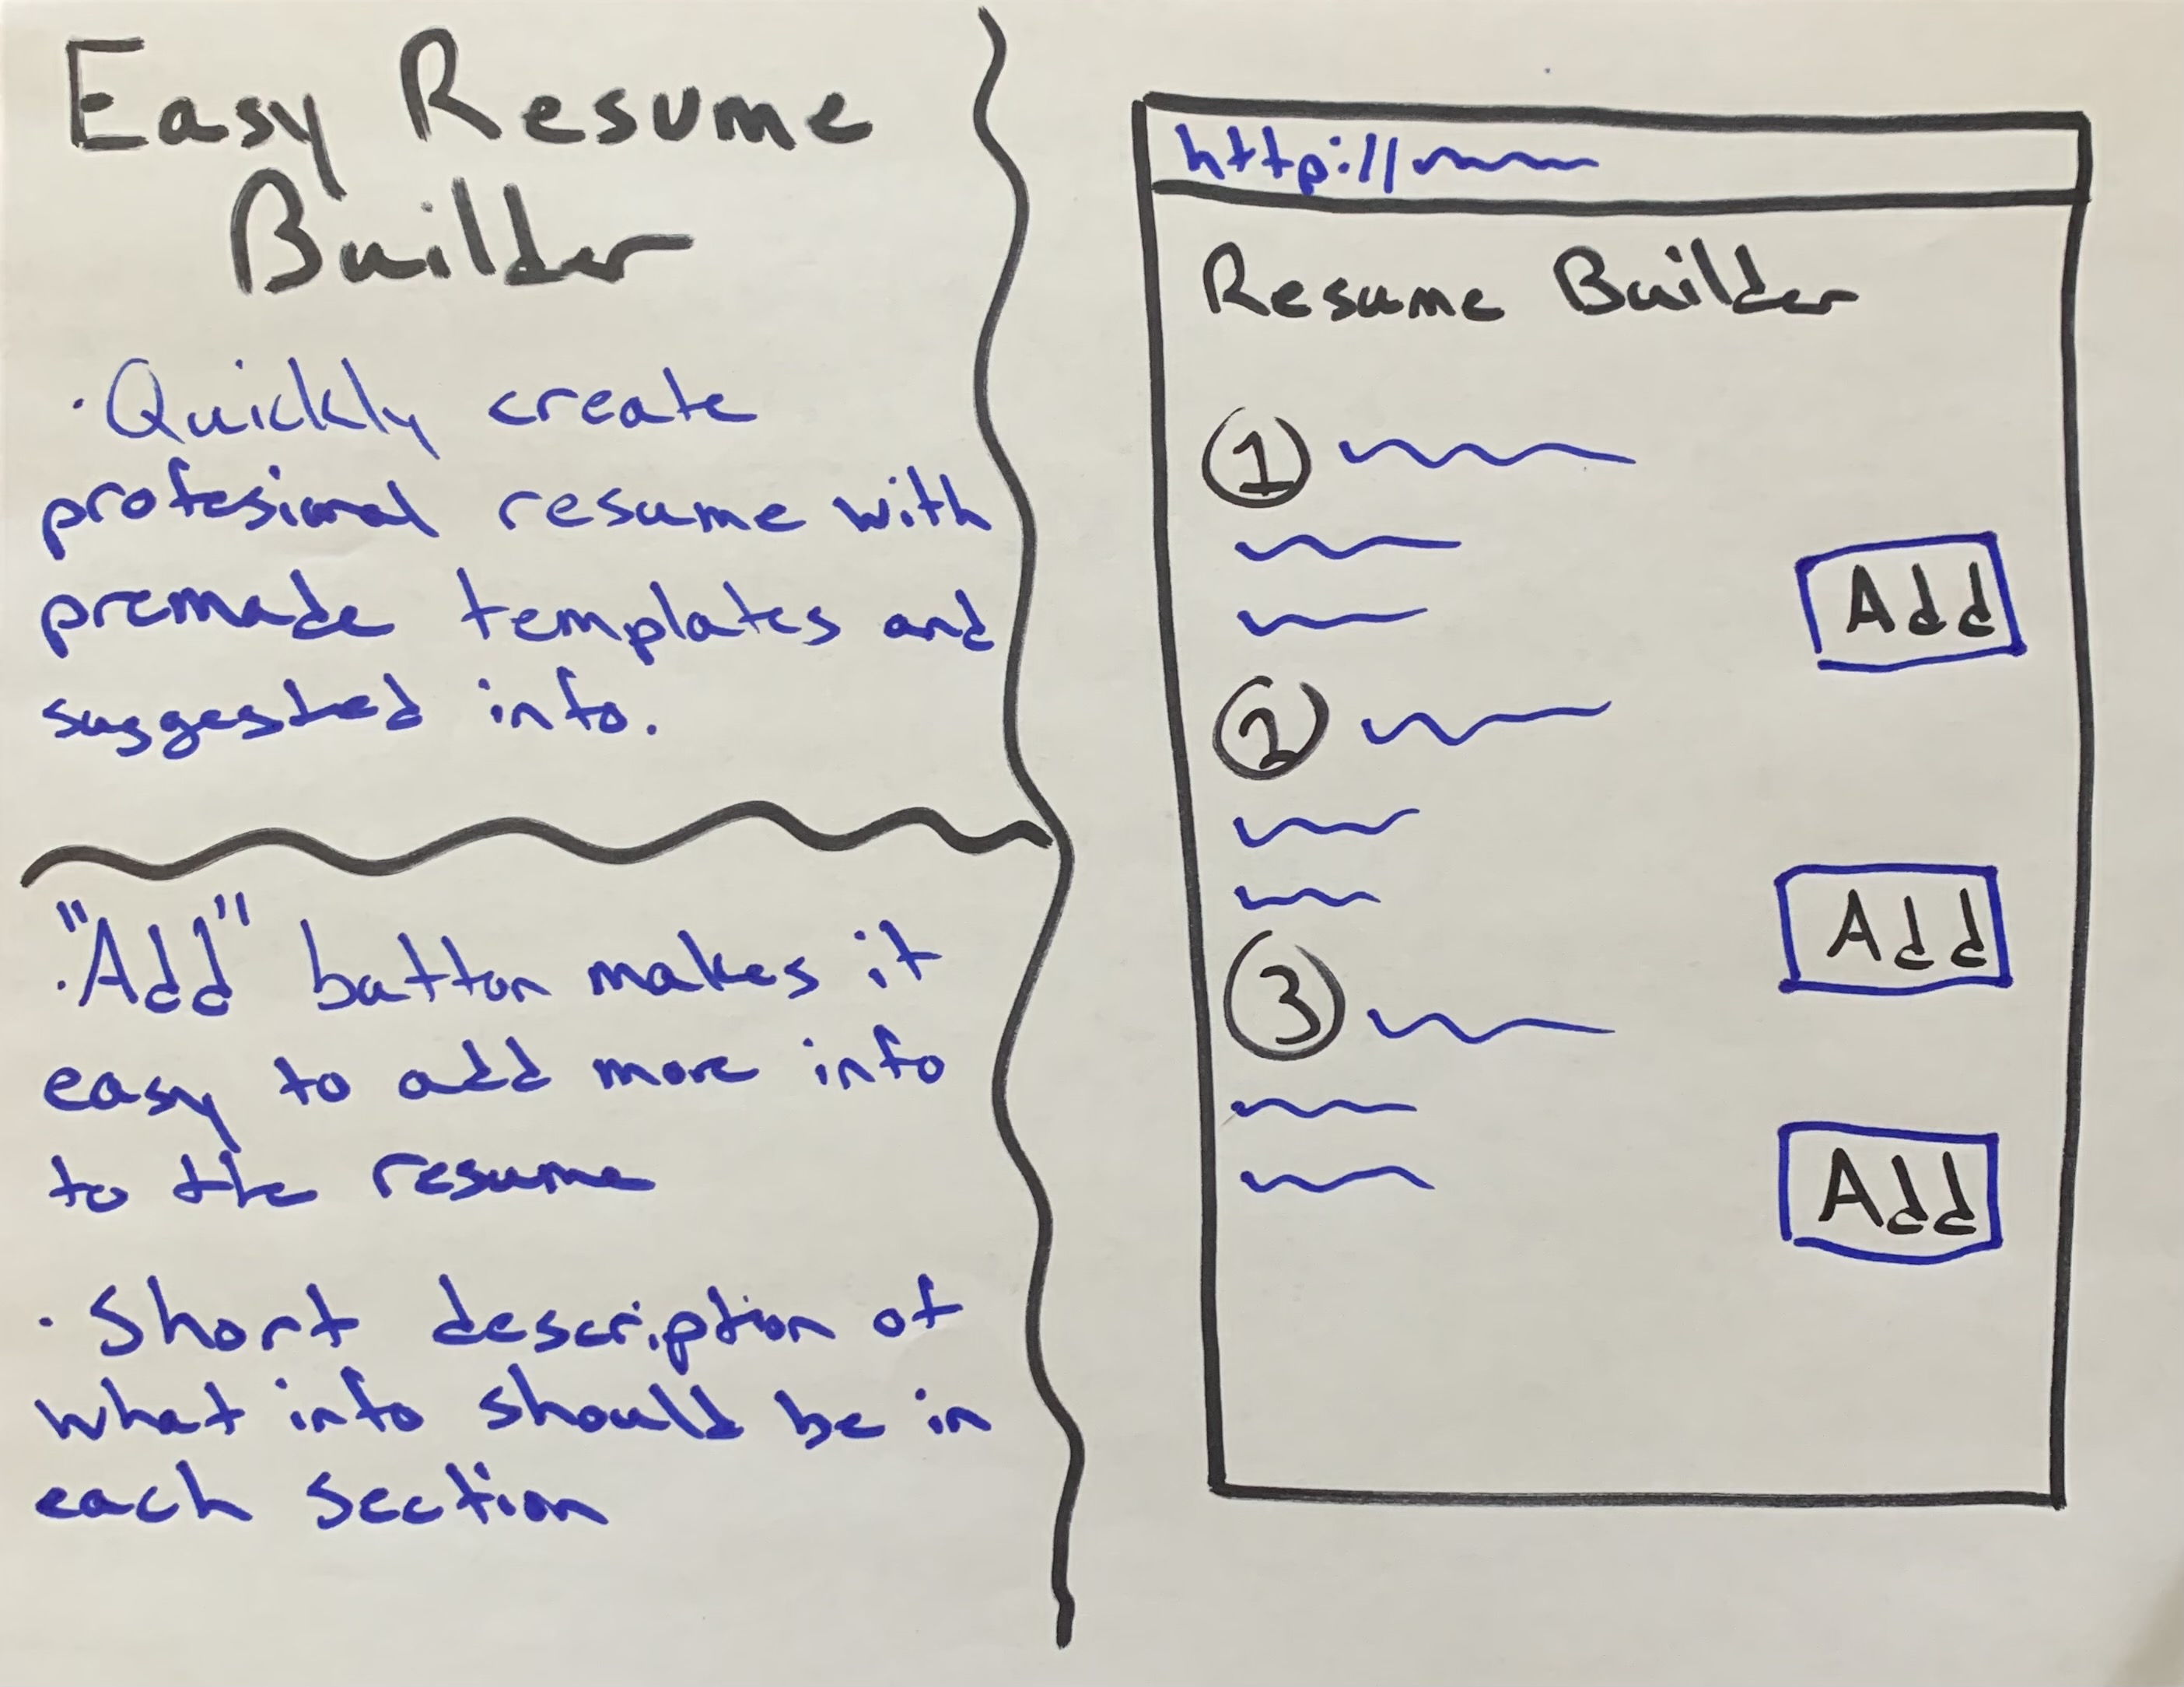 Easy Resume
Builder
· Quickly create
profesional resume with
premade templates and
suggested info.
· "Add" button makes it
easy to add more info
to the resume
· Short description of
what info should be in
each section
http://
Resume Builder
1
Add
2
Add
3
Add